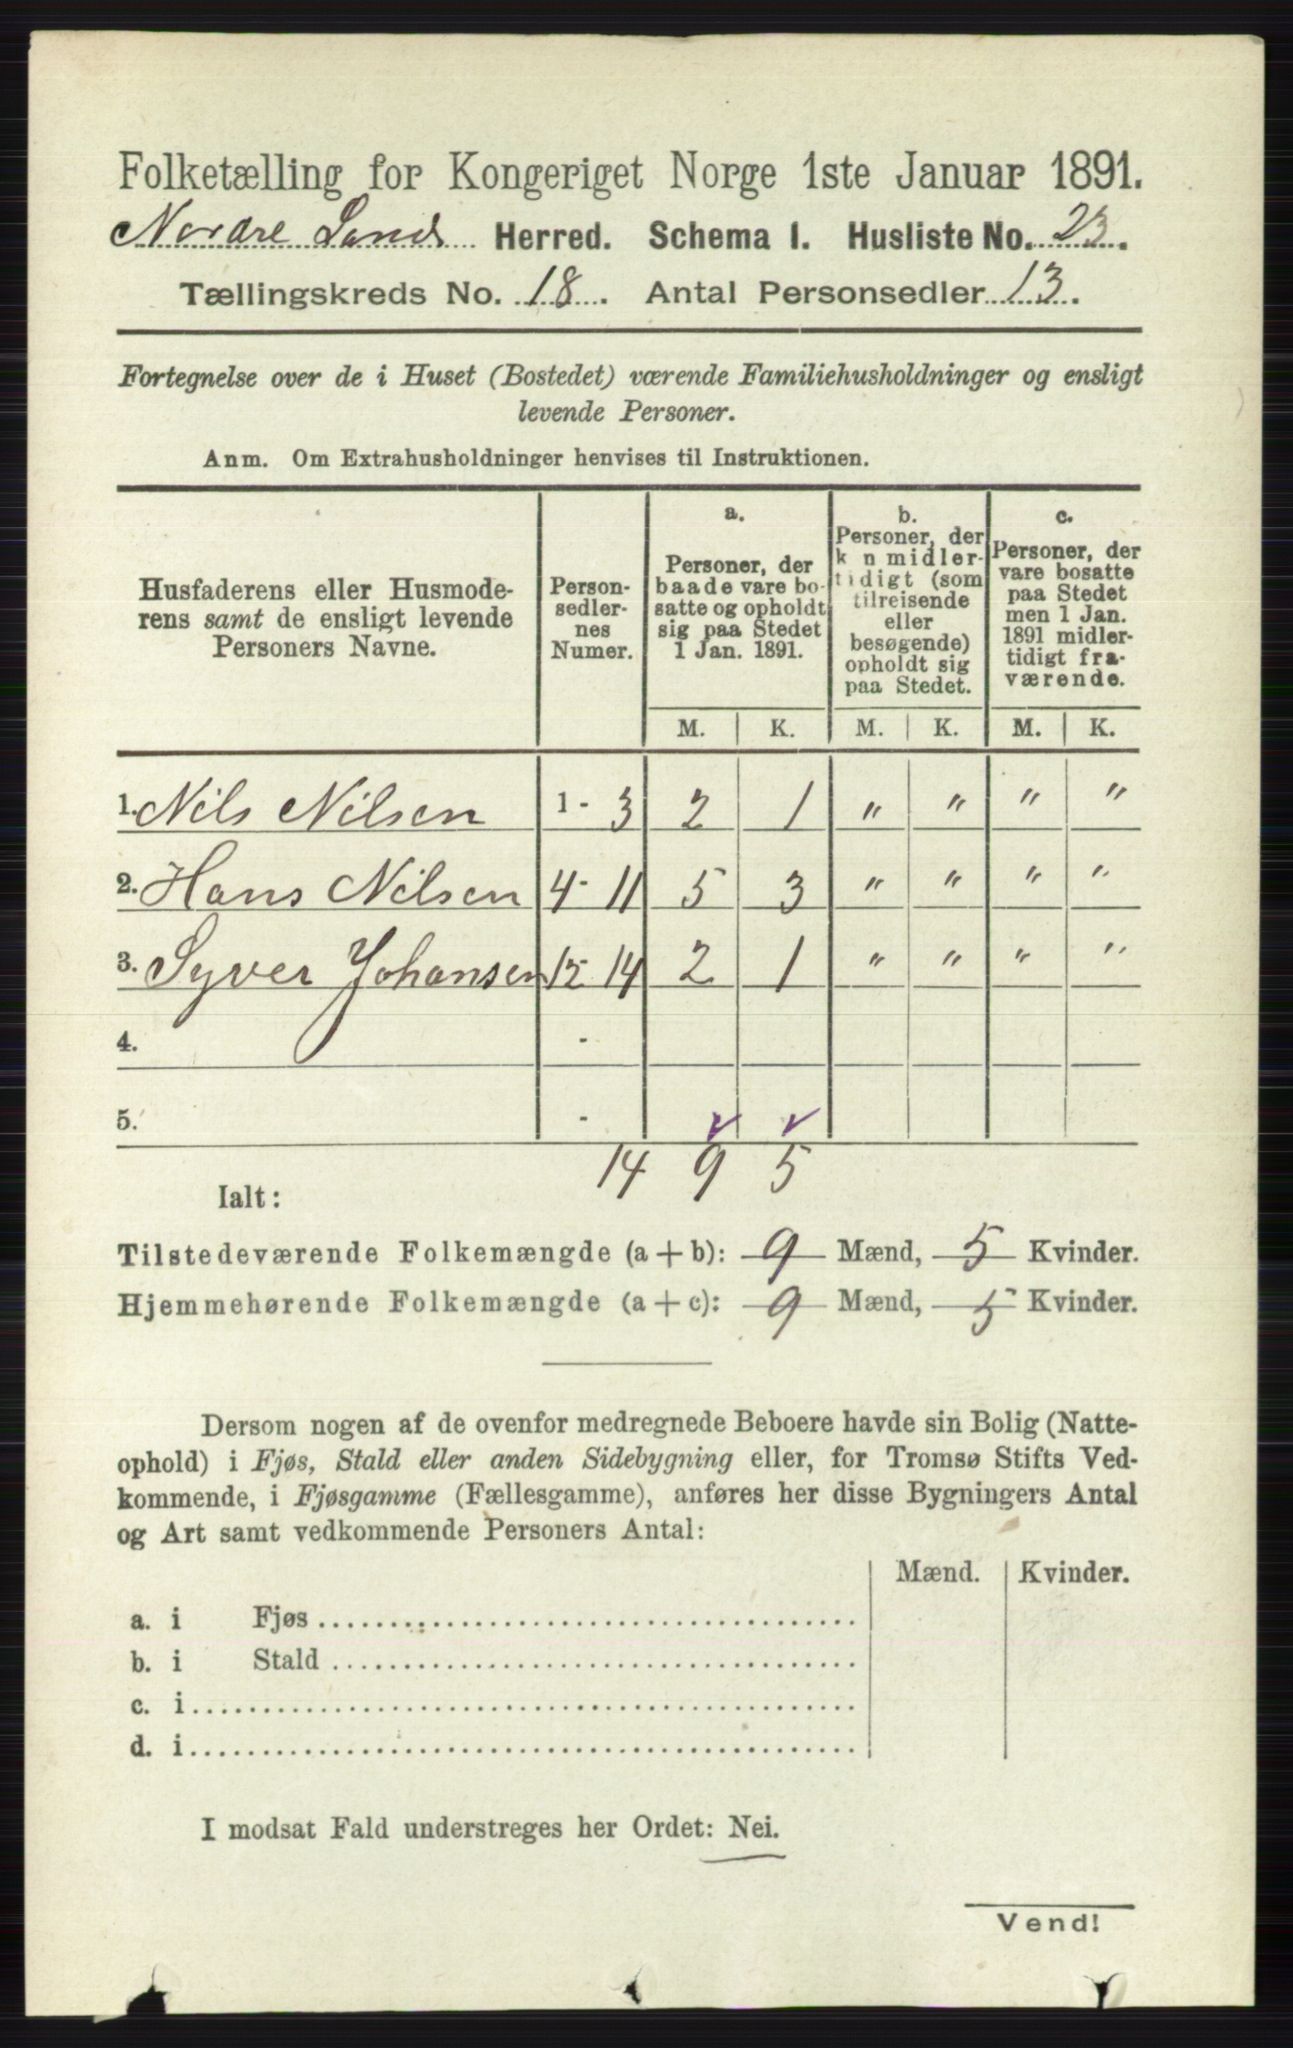 Folketælling for Kongeriget Norge 1ste Januar 1891.
Nordre Land Herred. Schema I. Husliste No. 23.
Tællingskreds No. 18. Antal Personsedler 13.
Fortegnelse over de i Huset (Bostedet) værende Familiehusholdninger og ensligt
levende Personer.
Anm. Om Extrahusholdninger henvises til Instruktionen.
Husfaderens eller Husmode-
rens samt de ensligt levende
Personers Navne.
Person-
sedler-
nes
Numer.
a.
Personer, der
baade vare bo-
satte og opholdt
sig paa Stedet
1 Jan. 1891.
b.
Personer, der
k n midler-
tidigt (som
tilreisende
eller
besøgende)
opholdt sig
paa Stedet.
c.
Personer, der
vare bosatte
paa Stedet
men 1 Jan.
1891 midler-
tidigt fra-
værende.
M. K. M. K. M. K.
1. Nils Nilsen 1 - 3 2 1 " " " "
2. Hans Nilsen 4 - 11 5 3 " " " "
3. Syver Johansen 12 - 14 2 1 " " " "
4. -
5. -
14 9 5
Ialt:
Tilstedeværende Folkemængde (a + b): 9 Mænd, 5 Kvinder.
Hjemmehørende Folkemængde (a + c): 9 Mænd, 5 Kvinder.
Dersom nogen af de ovenfor medregnede Beboere havde sin Bolig (Natte-
ophold) i Fjøs, Stald eller anden Sidebygning eller, for Tromsø Stifts Ved-
kommende, i Fjøsgamme (Fællesgamme), anføres her disse Bygningers Antal
og Art samt vedkommende Personers Antal:
Mænd. Kvinder.
a. i Fjøs
b. i Stald
c. i
d. i
I modsat Fald understreges her Ordet: Nei.
Vend!